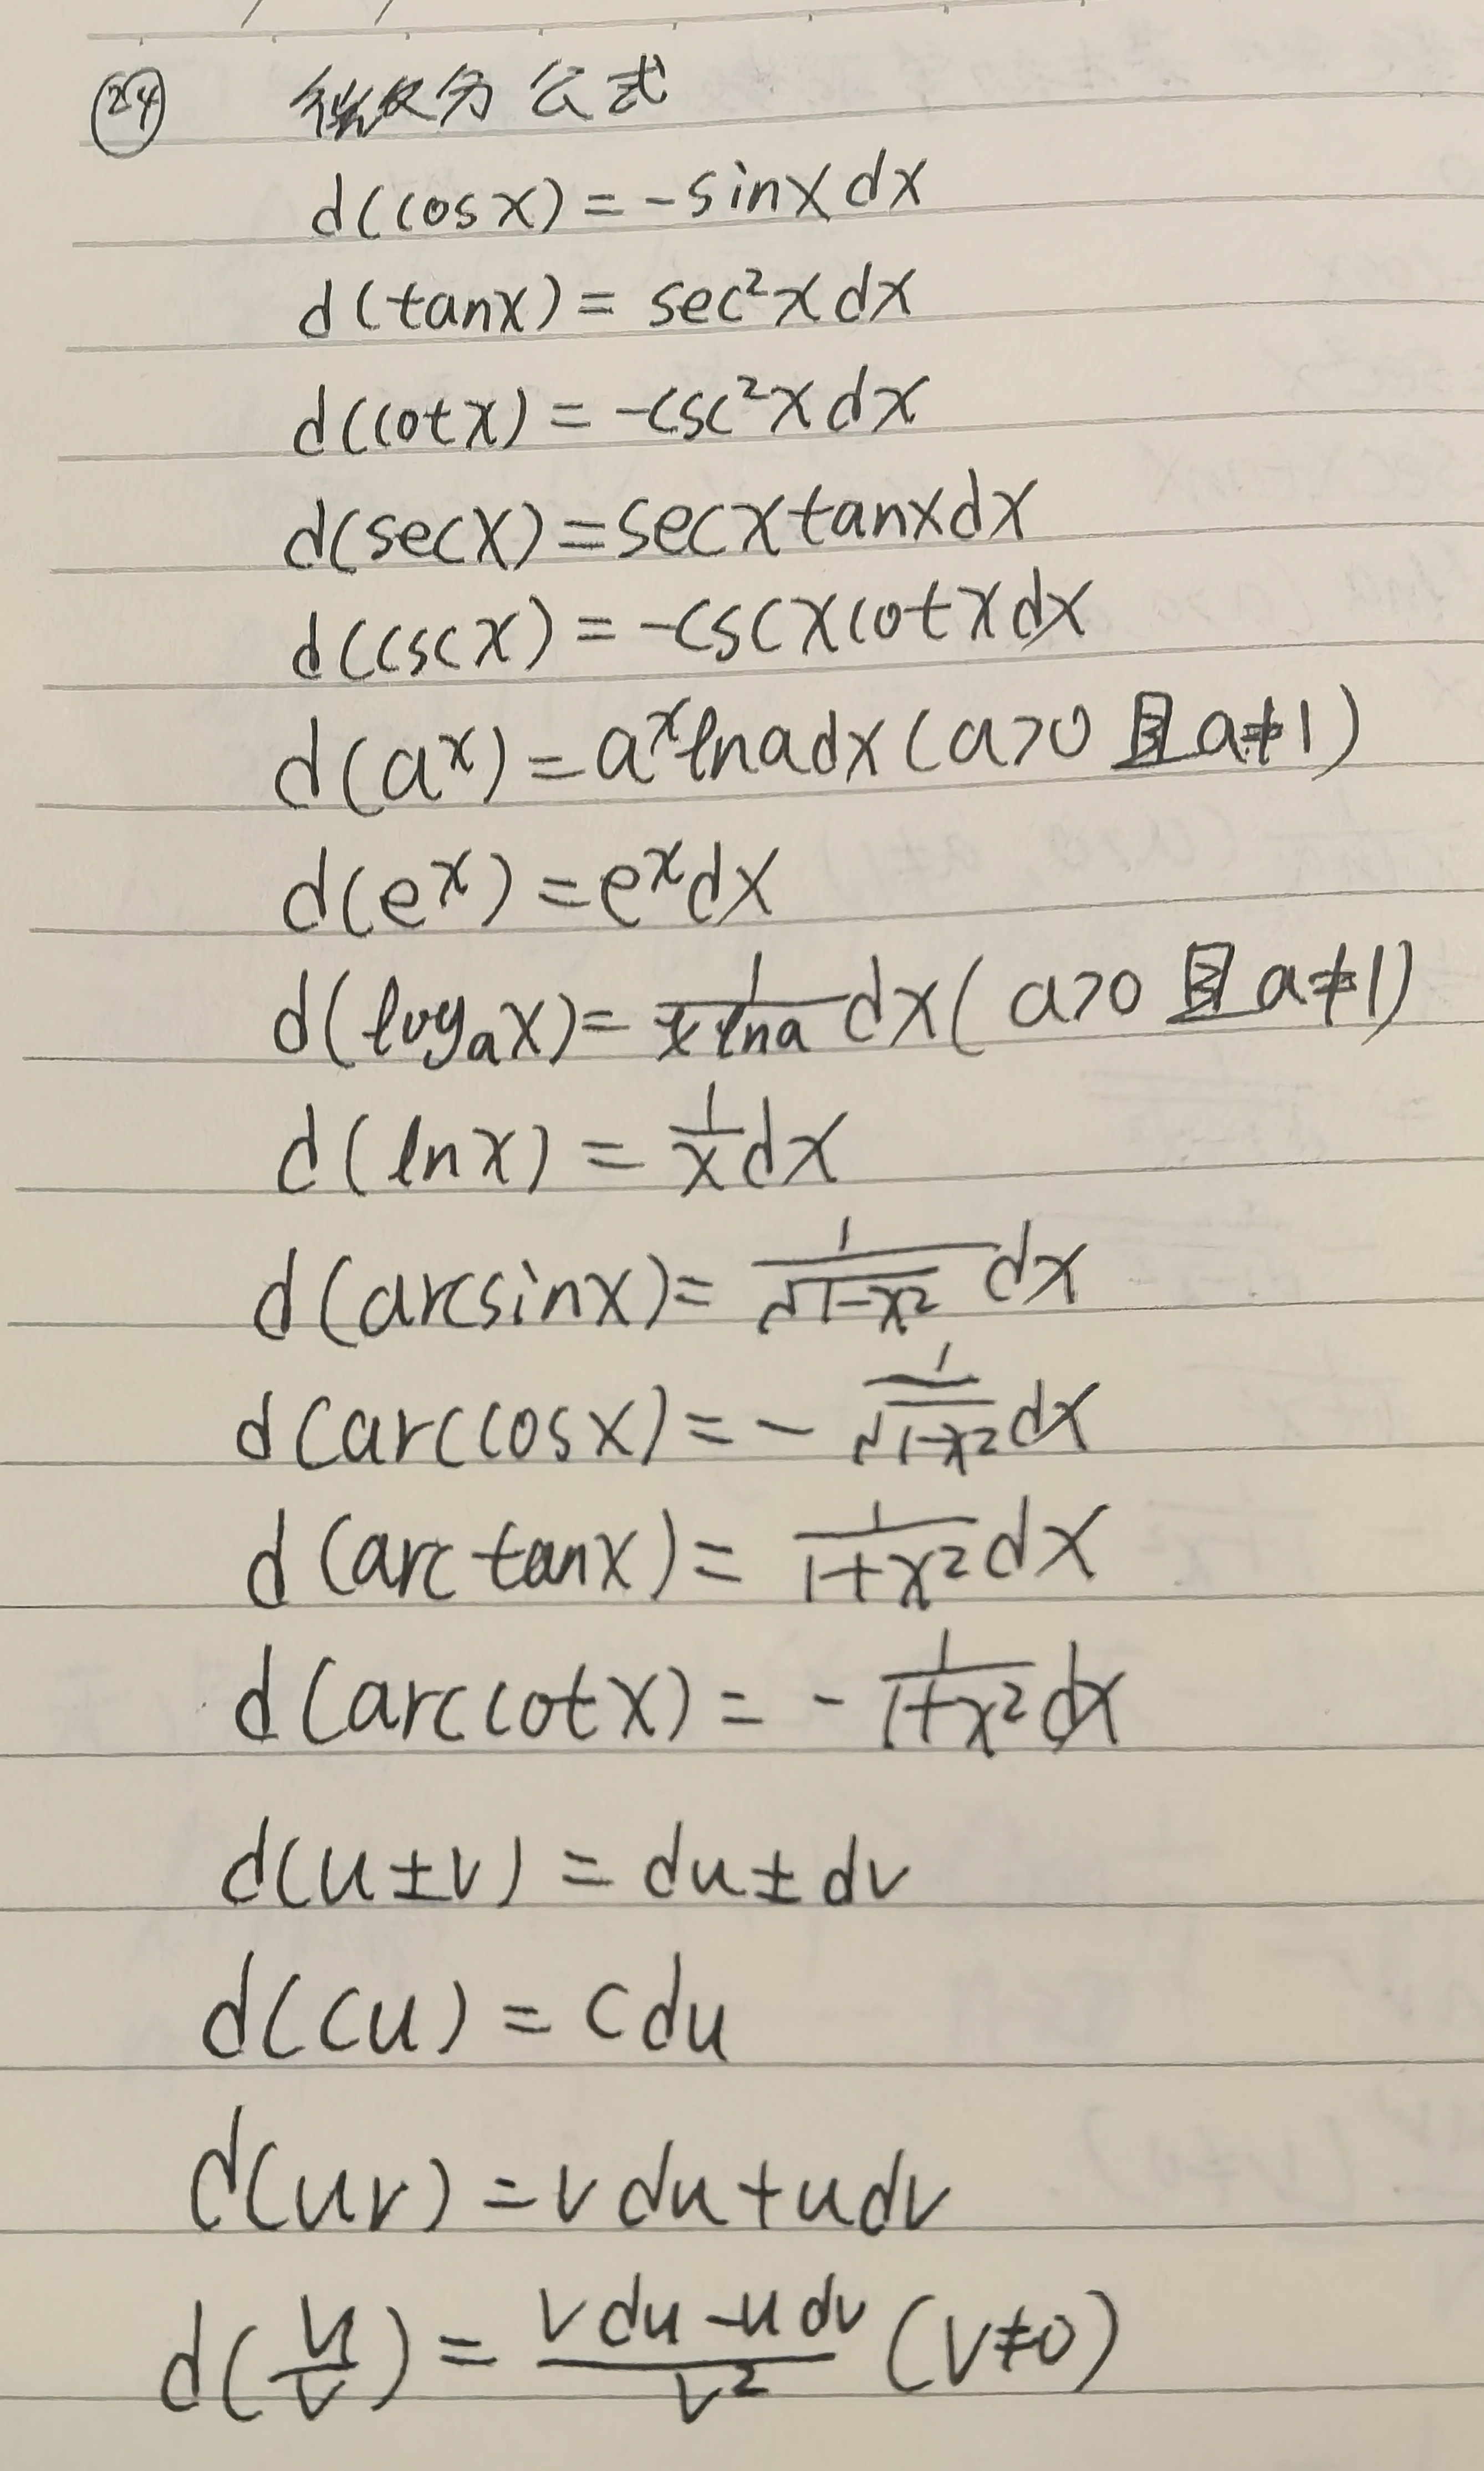 ㉔ 微分公式
d(cosx)=-sinxdx
d(tanx)=sec²xdx
d(cotx)=-csc²xdx
d(secx)=secxtanxdx
d(cscx)=-cscxcotxdx
d(aˣ)=aˣlnadx(a>0且a≠1)
d(eˣ)=eˣdx
d(logₐx)=\frac{1}{xlna}dx(a>0且a≠1)
d(lnx)=\frac{1}{x}dx
d(arcsinx)=\frac{1}{\sqrt{1-x²}}dx
d(arccosx)=-\frac{1}{\sqrt{1-x²}}dx
d(arctanx)=\frac{1}{1+x²}dx
d(arccotx)=-\frac{1}{1+x²}dx
d(u±v)=du±dv
d(cu)=cdu
d(uv)=vdu+udv
d(\frac{u}{v})=\frac{vdu-udv}{v²}(v≠0)